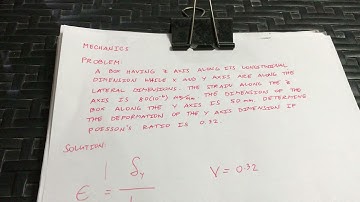 MECHANICS
PROBLEM:
A BOX HAVING Z AXIS ALONG ITS LONGITUDINAL
DIMENSION WHILE X AND Y AXIS ARE ALONG THE
LATERAL DIMENSIONS. THE STRAIN ALONG THE Z
AXIS IS 80(10⁻⁶) mm/mm. THE DIMENSION OF THE
BOX ALONG THE Y AXIS IS 50 mm. DETERMINE
THE DEFORMATION OF THE Y AXIS DIMENSION IF
POISSON'S RATIO IS 0.32.
SOLUTION:
δy
ϵ = V = 0.32